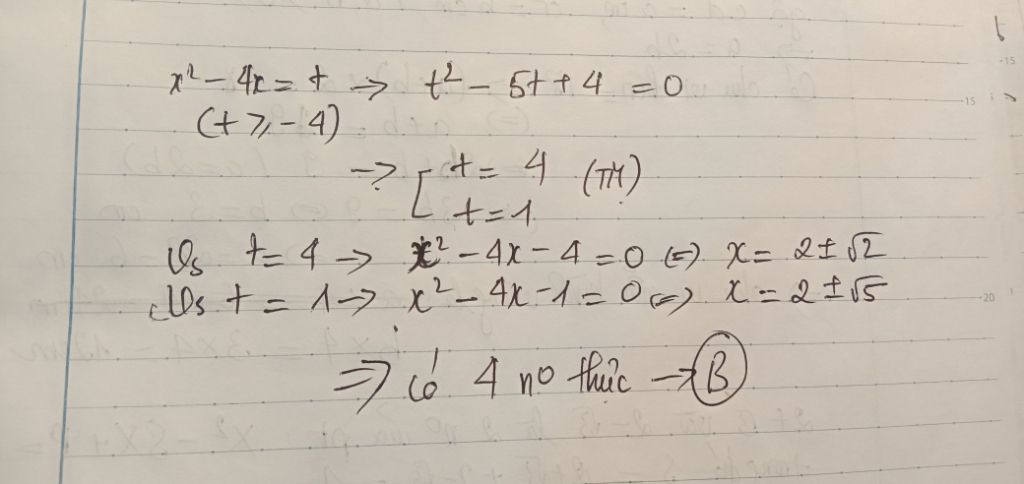 x² - 4x = t → t² - 5t + 4 = 0
(t ≥ -4)
→ [ t = 4 (TM)
t = 1
Vs t = 4 → x² - 4x - 4 = 0 (=) x = 2 ± √2
Vs t = 1 → x² - 4x - 1 = 0 (=) x = 2 ± √5
=> có 4 no thức → B